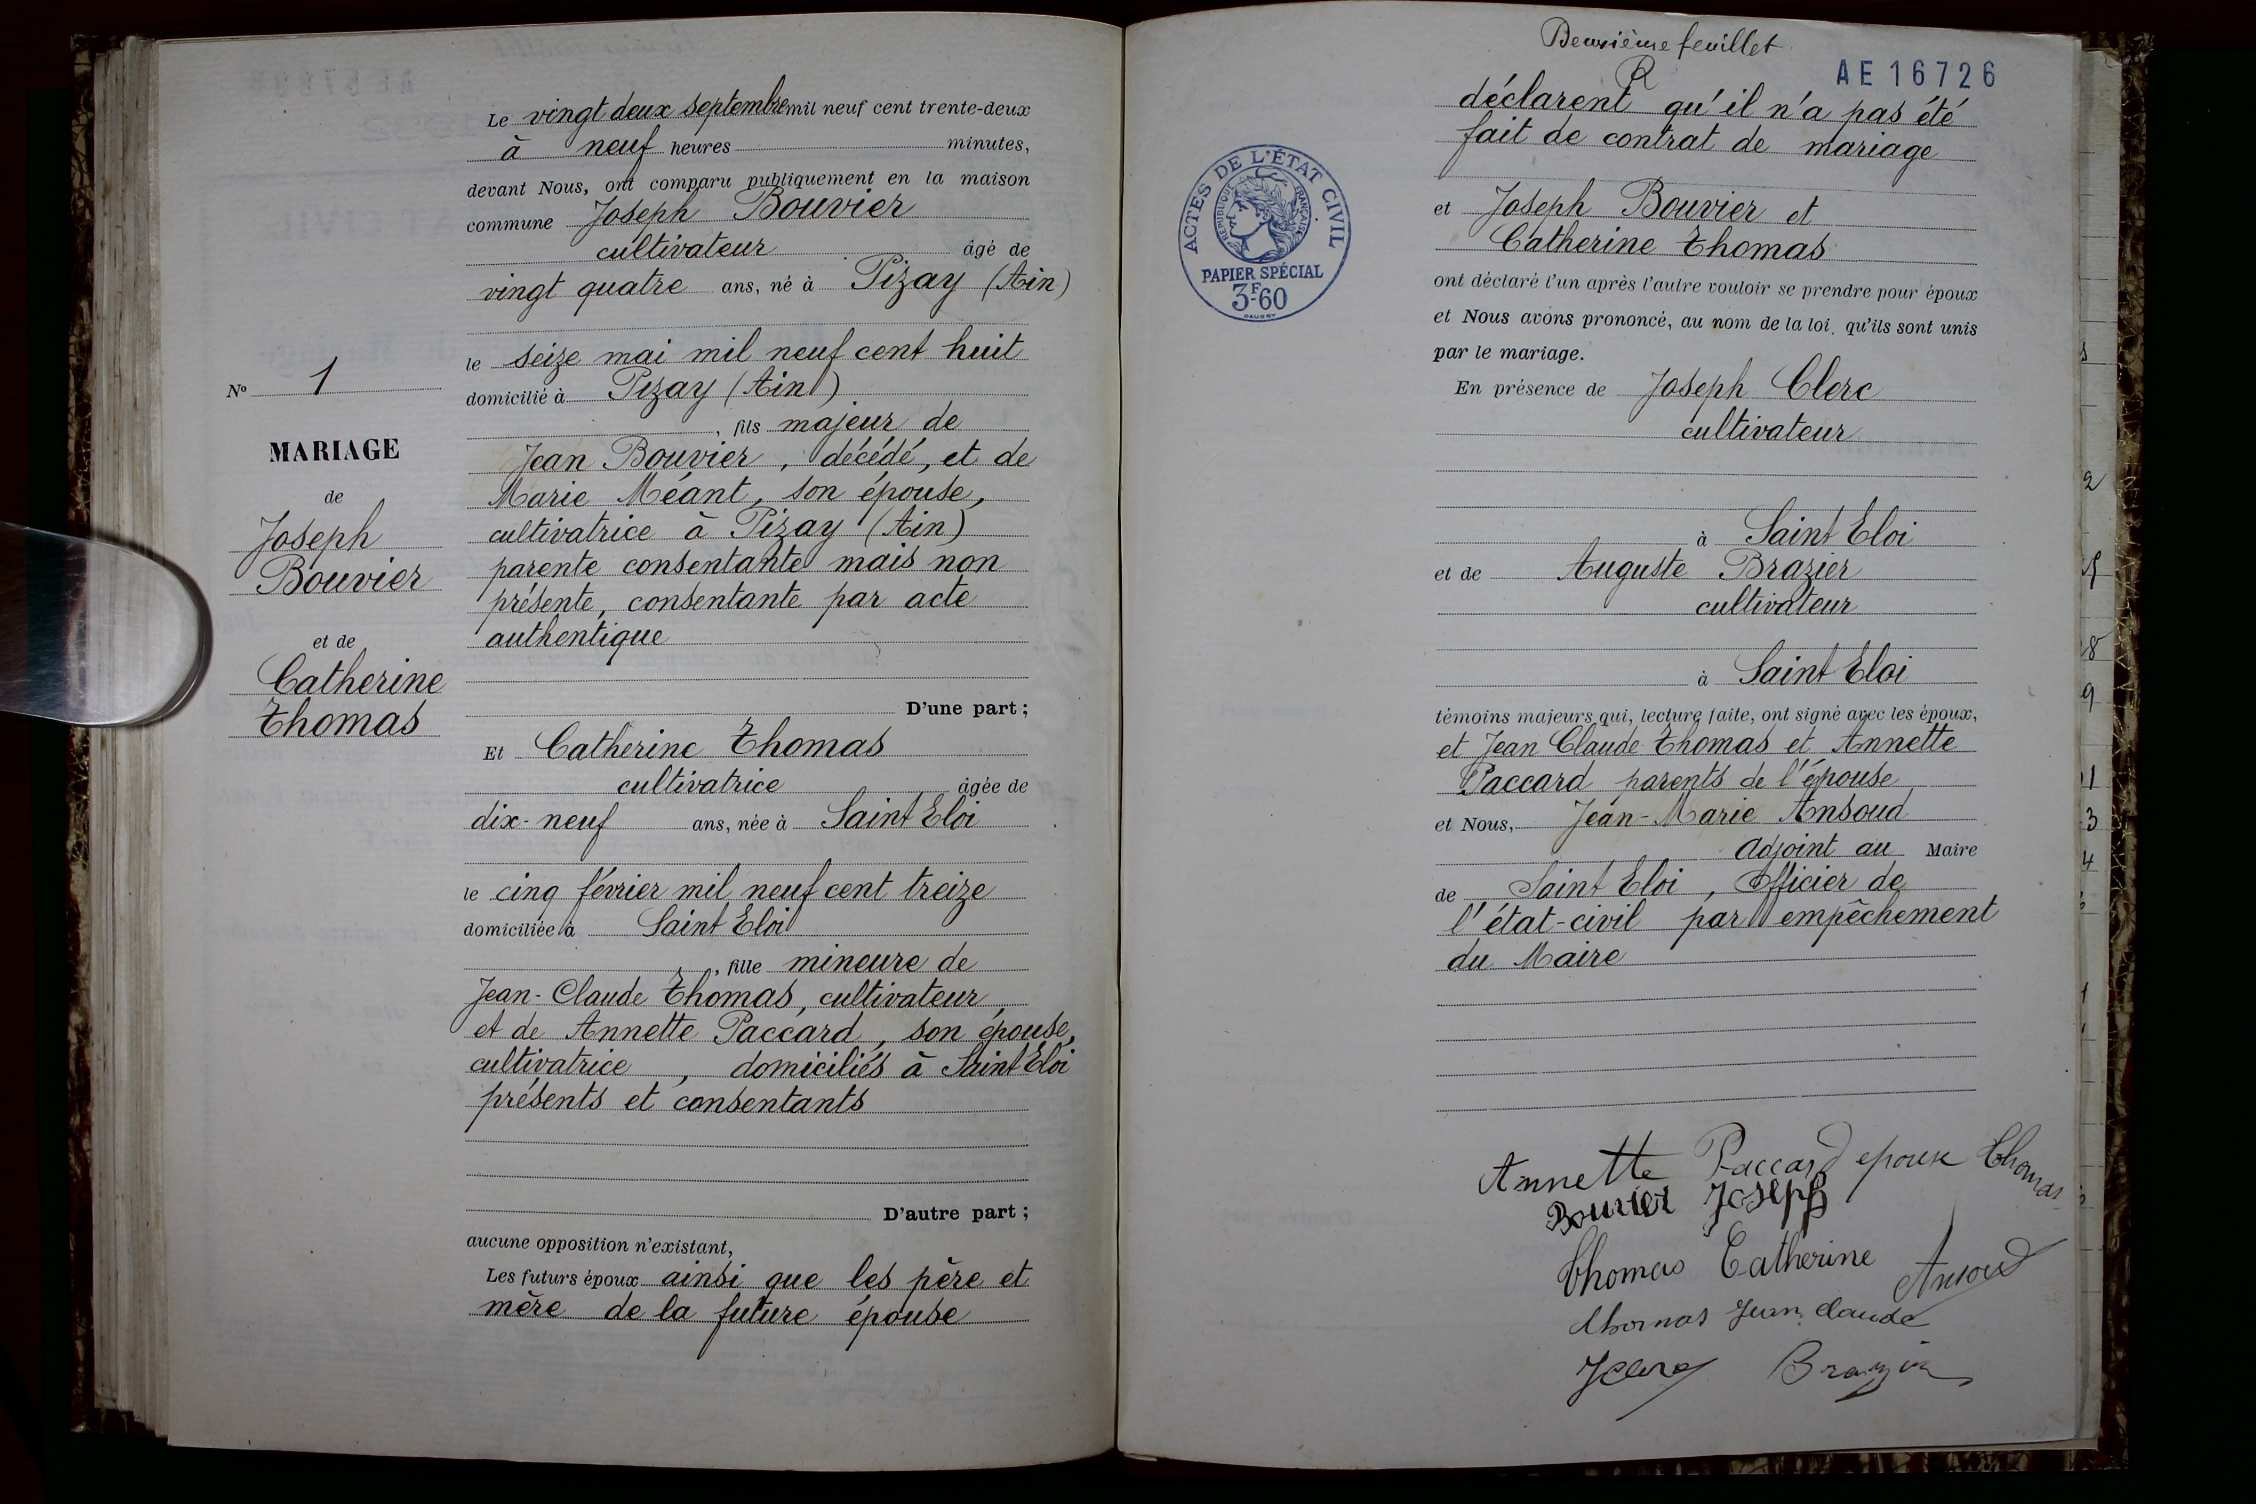 Le vingt deux septembre mil neuf cent trente-deux
à neuf heures minutes,
devant Nous, ont comparu publiquement en la maison
commune Joseph Bouvier
cultivateur âgé de
vingt quatre ans, né à Pizay (Ain)
le seize mai mil neuf cent huit
domicilié à Pizay (Ain)
, fils majeur de
Jean Bouvier, décédé, et de
Marie Méant, son épouse,
cultivatrice à Pizay (Ain)
parente consentante mais non
présente, consentante par acte
authentique
D'une part ;
Et Catherine Thomas
cultivatrice âgée de
dix-neuf ans, née à Saint Eloi
le cinq février mil neuf cent treize
domiciliée à Saint Eloi
, fille mineure de
Jean-Claude Thomas, cultivateur,
et de Annette Paccard, son épouse,
cultivatrice, domiciliés à Saint Eloi
présents et consentants
D'autre part ;
aucune opposition n'existant,
Les futurs époux ainsi que les père et
mère de la future épouse
No 1
MARIAGE
de
Joseph
Bouvier
et de
Catherine
Thomas
Deuxième feuillet
AE 16726
déclarent qu'il n'a pas été
fait de contrat de mariage
et Joseph Bouvier et
Catherine Thomas
ont déclaré l'un après l'autre vouloir se prendre pour époux
et Nous avons prononcé, au nom de la loi, qu'ils sont unis
par le mariage.
En présence de Joseph Clerc
cultivateur
à Saint Eloi
et de Auguste Brazier
cultivateur
à Saint Eloi
témoins majeurs qui, lecture faite, ont signé avec les époux,
et Jean Claude Thomas et Annette
Paccard parents de l'épouse
et Nous, Jean-Marie Ansoud
adjoint au Maire
de Saint Eloi, Officier de
l'état-civil par empêchement
du Maire
Annette Paccard epouse Thomas
Bouvier Joseph
Thomas Catherine
Ansoud
Thomas Jean Claude
JClerc Brazier
ACTES DE L'ÉTAT CIVIL
RÉPUBLIQUE FRANÇAISE
PAPIER SPÉCIAL
3F.60